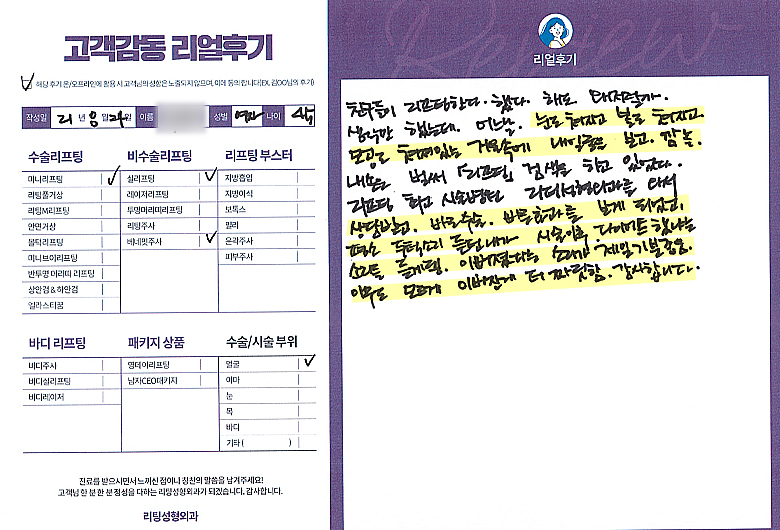 고객감동 리얼후기
해당 후기 온/오프라인에 활용 시 고객님의 성함은 노출되지 않으며, 이에 동의 합니다(EX. 김OO님의 후기)
작성일 21 년 8월 24일 이름 성별 여자 나이
수술리프팅
미니리프팅
리팅풀거상
리팅M리프팅
안면거상
볼턱리프팅
미니브이리프팅
반투명 미리띠 리프팅
상안검 & 하안검
엘라스티꿈
비수술리프팅
실리프팅
레이저리프팅
투명미리띠리프팅
리팅주사
버네벗주사
리프팅 부스터
지방흡입
지방이식
보톡스
필러
윤곽주사
피부주사
바디 리프팅
바디주사
바디실리프팅
바디레이저
패키지 상품
영데이리프팅
남자CEO패키지
수술/시술 부위
얼굴
이마
눈
목
바디
기타 ( )
진료를 받으시면서 느끼신 점이나 칭찬의 말씀을 남겨주세요!
고객님 한 분 한 분 정성을 다하는 리팅성형외과가 되겠습니다. 감사합니다.
리팅성형외과
Review
리얼후기
친구들이 리프팅한다. 했다. 해도
생각만 했는데. 어느날. 눈도 처지고 볼도 처지고
모공도 처져있는 거울속에 내얼굴을 보고. 깜놀.
내손은 벌써 "리프팅" 검색을 하고 있었다.
리프팅 하고 시술병원 리팅성형외과를 와서
상담받고. 바로수술. 바로효과를 보게 되었고,
평소 소리 듣던 내가 시술이후 다이어트 했냐는
소리를 듣게됨. 이뻐졌다는 소리가 제일 기분좋음.
아무도 모르게 이뻐진게 더 짜릿함. 감사합니다.